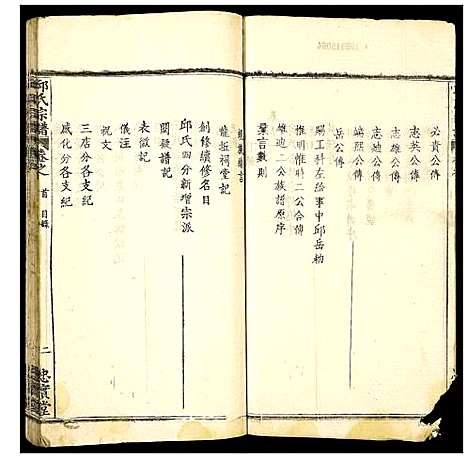 必貴公傳
志英公傳
志雄公傳
志廸公傳
煏熙公傳
岳公傳
賜工科左給事中邱岳勑
惟明惟時二公合傳
雄迪二公族譜原序
羣言數則
龍扯祠堂記
創修續修名目
邱氏四分新增宗派
闕疑譜記
表微記
儀注
祝文
三店分各支紀
咸化分各支紀
邱氏宗譜 卷之首 目錄 二 忠實堂